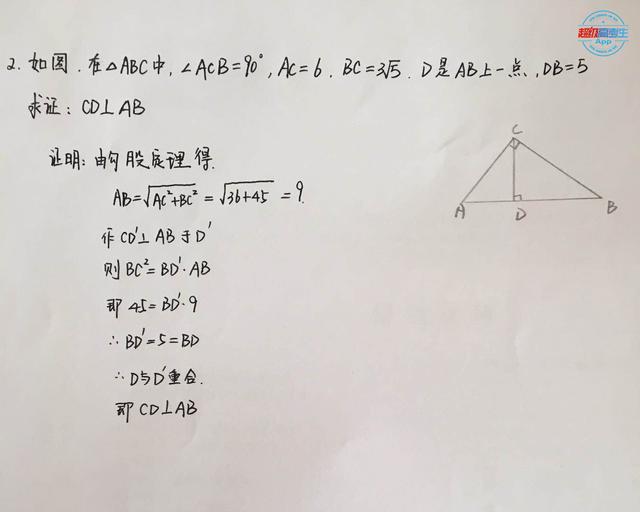 超级高考生
App
2. 如图, 在△ABC中, ∠ACB=90°, AC=6. BC=3√5. D是AB上一点, DB=5
求证: CD⊥AB
证明: 由勾股定理得.
AB=√AC²+BC² = √36+45 = 9.
作CD'⊥AB于D'
则BC²=BD'·AB
即 45=BD'·9
∴BD'=5=BD
∴D与D'重合.
即 CD⊥AB
C
A
D
B